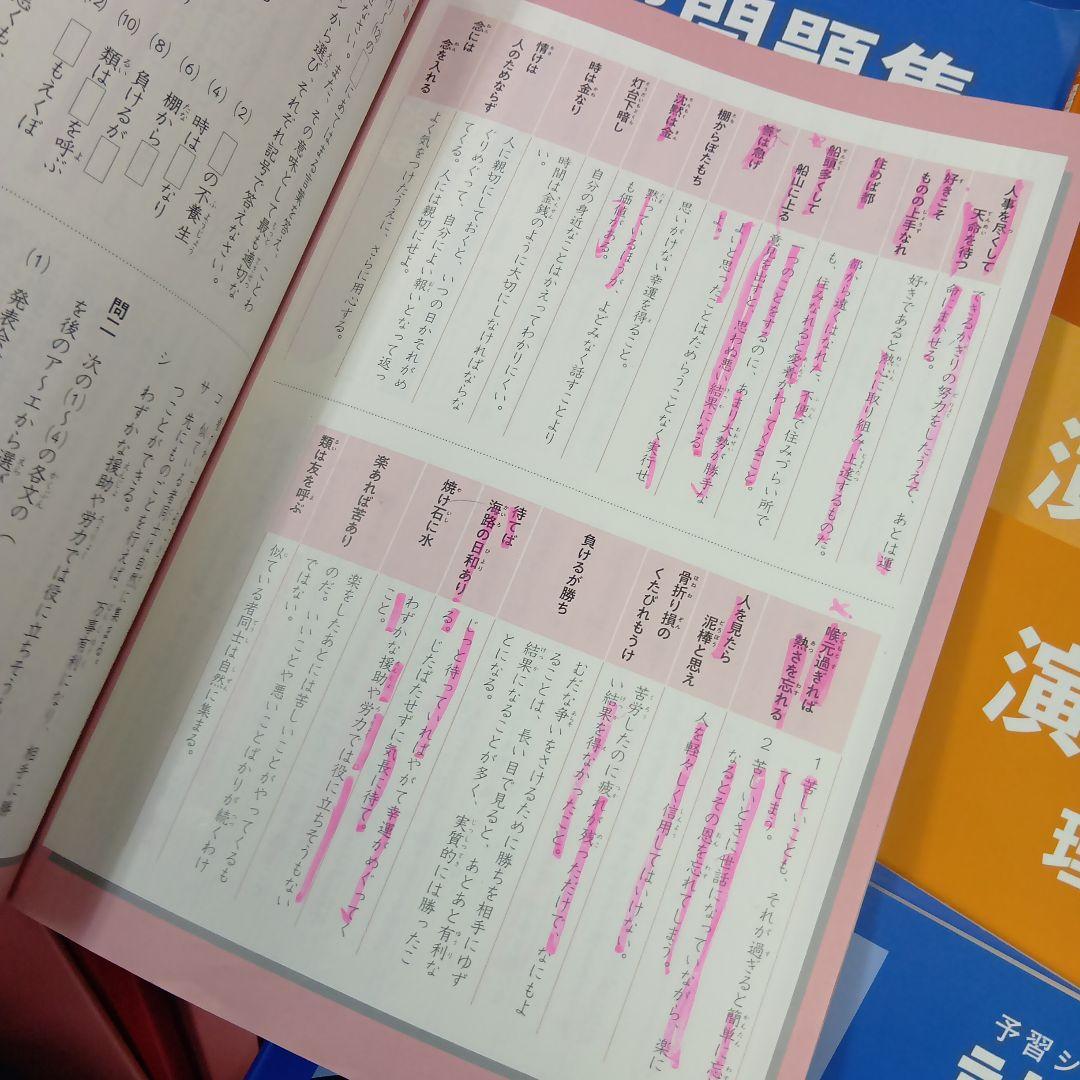 問題集
人事を尽くして
天命を待つ
できるかぎりの努力をしたうえで、あとは運
命にまかせる。
好きこそ
ものの上手なれ
好きであると熱心に取り組み、上達するものだ。
住めば都
都から遠くはなれた、不便で住みづらい所で
も、住みなれると愛着がわいてくること。
船頭多くして
船山に上る
一つのことをするのに、あまり大勢が勝手な
意見を出すと、思わぬ悪い結果になる。
善は急げ
よいと思ったことはためらうことなく実行せ
よ。
棚からぼたもち
思いがけない幸運を得ること。
沈黙は金
黙っているほうが、よどみなく話すことより
も価値がある。
灯台下暗し
自分の身近なことはかえってわかりにくい。
時は金なり
時間は金銭のように大切にしなければならな
い。
情けは
人のためならず
人に親切にしておくと、いつの日かそれがめ
ぐりめぐって、自分によい報いとなって返っ
てくる。人には親切にせよ。
念には
念を入れる
よく気をつけたうえに、さらに用心する。
喉元過ぎれば
熱さを忘れる
1 苦しいことも、それが過ぎると簡単に忘
てしまう。
2 苦しいときに世話になっていながら、楽に
なるとその恩を忘れてしまう。
人を見たら
泥棒と思え
人を軽々しく信用してはいけない。
骨折り損の
くたびれもうけ
苦労したのに疲れが残っただけで、なにもよ
い結果を得なかったこと。
負けるが勝ち
むだな争いをさけるために勝ちを相手にゆず
ることは、長い目で見ると、あとあと有利な
結果になることが多く、実質的には勝ったこ
とになる。
待てば
海路の日和あり
じっと待っていればやがて幸運がめぐってく
る。じたばたせずに気長に待て。
焼け石に水
わずかな援助や労力では役に立ちそうもない
こと。
楽あれば苦あり
楽をしたあとには苦しいことがやってくるも
のだ。いいことや悪いことばかりが続くわけ
ではない。
類は友を呼ぶ
似ている者同士は自然に集まる。
にあてはまる言葉を答え、ことわ
ざなさい。また、その意味として最も適切な
ンから選び、それぞれ記号で答えなさい。
(2) □の不養生
(4) 時は□なり
(6) 棚から□
(8) 負けるが□
(10) 類は□を呼ぶ
□もえくぼ
サ 先にものごとを行えば、万事有利になり、相手に勝
つことができる。
シ わずかな援助や労力では役に立ちそう
問二 次の(1)〜(4)の各文の
を後のア〜エから選
(1)
発表会
演
演
理
予習シ